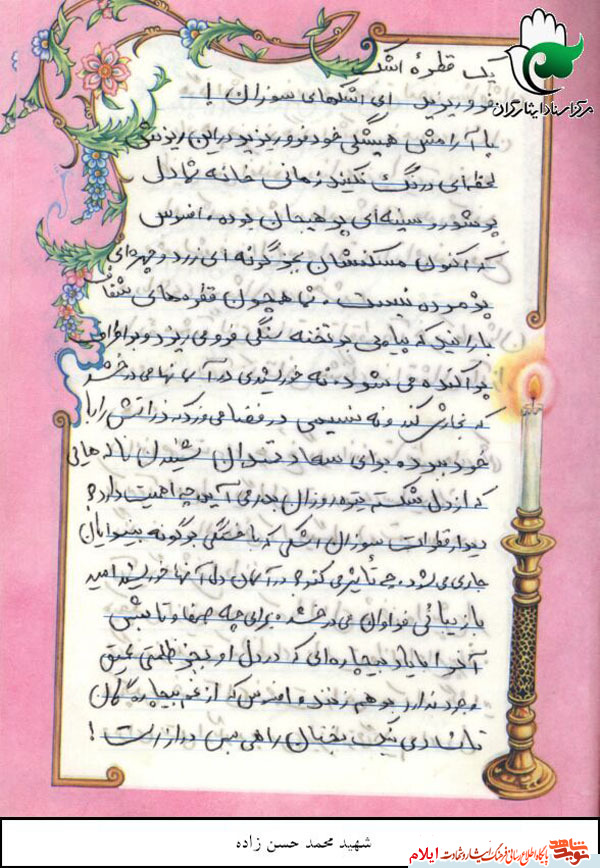 یک قطره اشک
فرو ریزید ای اشکهای سوزان!
با آرامش همیشگی خود فرو ریزید در این ریزش
لحظه‌ای درنگ نکنید زمانی خانه شما دل
پرشور و سینه‌ای پر هیجان بوده، افسوس
که اکنون مسکنشان بجز گونه ای زرد و چهره‌ای
پژمرده نیست، شما همچون قطره‌های شفاف
بارانید که پیاپی بر تخته سنگی فرو می ریزد و بر اطراف
پراکنده می شود، نه خورشیدی در آسمانها می درخشد
که بخارش کند و نه نسیمی در فضا می وزد که ذراتش را با
خود ببرد برای سعادتمندان شنیدن ناله هایی
که از دل شکسته تیره روزان بدر می آید، چه اهمیت دارد؟
دیدار قطرات سوزان اشکی که باخستگی بر گونه بینوایان
جاری می شود، چه تأثیر می کند؟ در آسمان دل آنها خورشید امید
با زیبائی فراوان می درخشد، برای چه صفا و تابش
آنرا با یاد بیچاره‌ای که در دل او بجز ظلمتی عمیق
وجود ندارد بر هم زنند و افسوس که از غم بیچارگان
تا شادی نیک بختان راهی بس دراز است!
مرکز اسناد ایثارگران
شهید محمد حسن زاده
نوید شاهد
پایگاه اطلاع رسانی فرهنگ ایثار و شهادت ایلام